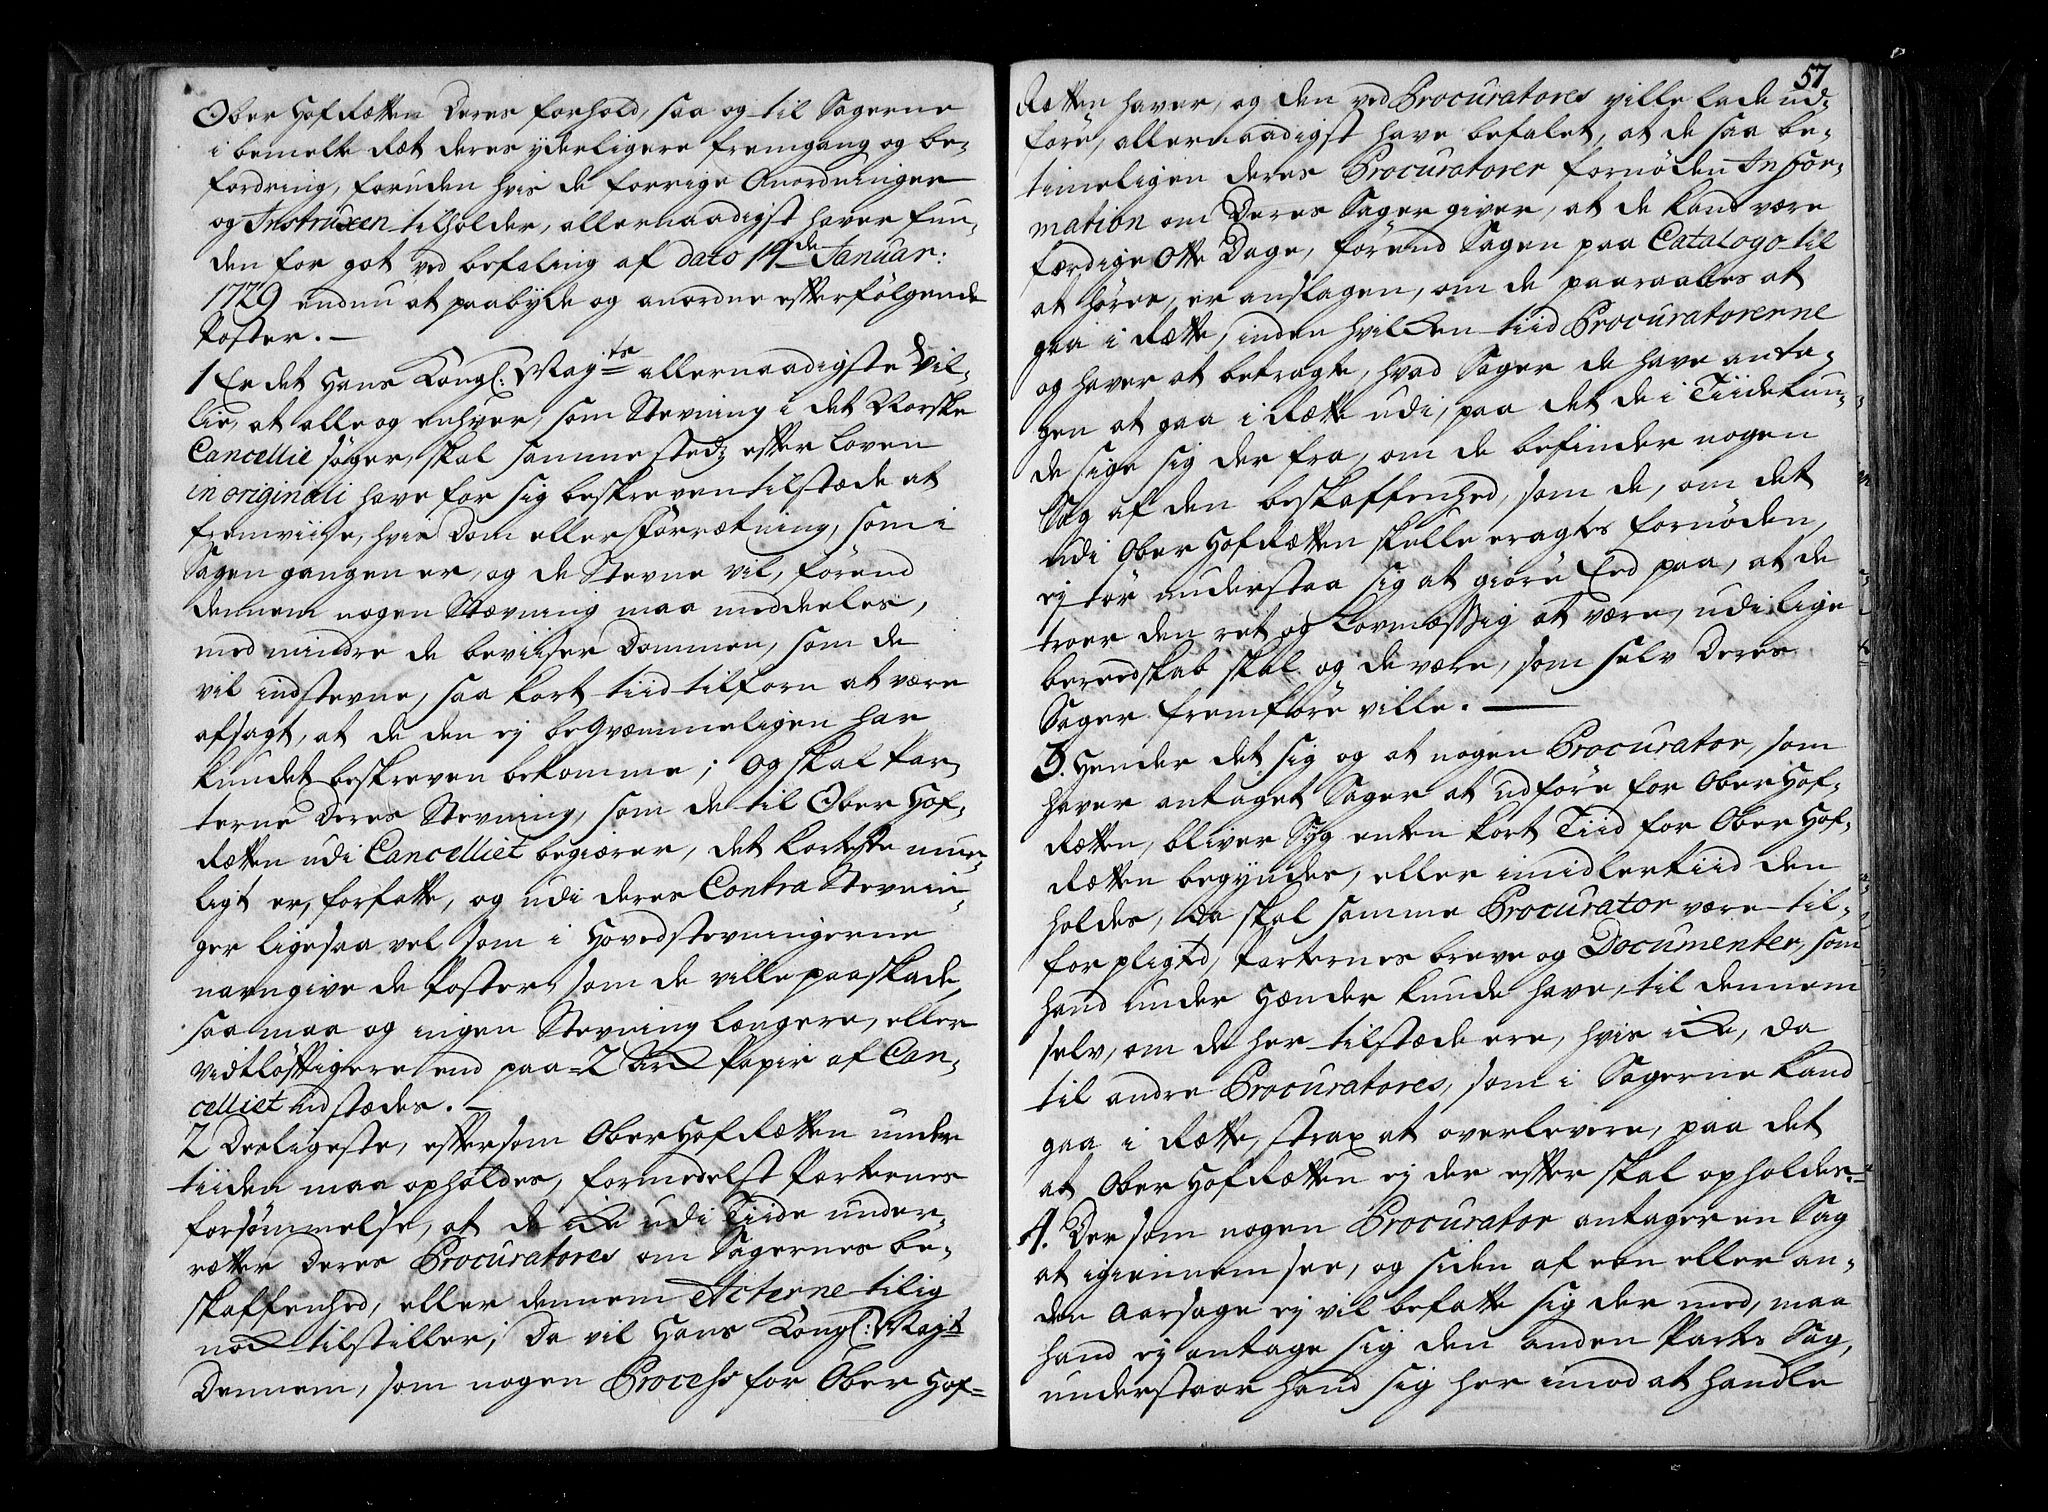 Ober Hof Rætten Deres forhold, saa og til Sagerne
i bemelte Ræt deres yderligere fremgang og be-
fordring, foruden hvis de forrige Anordninger
og Instruxen tilholder, allernaadigst haver fun-
den for got ved befaling af dato 14de Januar:
1729 endnu at paabyde og anordne efterfölgende
Poster. —
1 Er det Hans Kongl: Mayts allernaadigste Vil-
lie, at alle og enhver, som Stevning i det Norske
Cancellie söger, skal sammested efter Loven
in originali have for sig beskreven tilstæde at
fremviise, hvis Dom eller Forrætning, som i
Sagen gangen er, og de Stevne vil, förend
dennem nogen Stævning maa meddeeles,
med mindre de beviiser Dommen, som de
vil indstevne, saa kort tiid tilforn at være
afsagt, at de den ej beqvæmmeligen har
kundet beskreven bekomme; og skal Par-
terne Deres Stevning, som de til Ober Hof-
Rætten udi Cancelliet begiærer, det korteste mue-
ligt er, forfatte, og udi deres Contra Stevnin-
ger ligesaa vel som i Hovedstevningerne
navngive de Poster, som de ville paaskade,
saa maa og ingen Stevning længere, eller
vidtlöftigere end paa 2 Ark Papir af Can-
celliet udstædes. —
2 Derligeste, eftersom Ober Hof Rætten under
tiiden maa opholdes, formedelst Parternes
forsömmelse, at de icke udi Tiide under-
rætter Deres Procuratores om Sagernes be-
skaffenhed, eller dennem Acterne tilig
nock tilstiller; Da vil Hans Kongl: Mayt
Dennem, som nogen Process for Ober Hof-
57
Rætten haver, og den ved Procuratores ville lade ud-
före, allernaadigst have befalet, at de saa be-
timeligen deres Procuratorer fornöden Infor-
mation om Deres Sager giver, at de kand være
færdige Otte Dage, förend Sagen paa Catalogo til
at höres, er anslagen, om de paaraabes at
gaa i Rætte, inden hvilcken tiid Procuratorerne
og haver at betragte, hvad Sager de have anta-
gen at gaa i Rætte udi, paa det de i Tiide kun-
de sige sig der fra, om de befinder nogen
Sag af den beskaffenhed, som de, om det
udi Ober Hof Rætten skulle eragtes fornöden,
ej tör understaa sig at giöre Eed paa, at de
troer den ret og Lovmæssig at være, udi lige
bereedskab skal og de være, som selv Deres
Sager fremföre ville. —
3. Hender det sig og at nogen Procurator, som
haver antaget Sager at udföre for Ober Hof-
Rætten, bliver Syg enten kort Tiid for Ober Hof-
Rætten begyndes, eller imidlertiid den
holdes, da skal samme Procurator være til-
forpligtd, Parternes breve og Documenter, som
hand under Hænder kunde have, til dennem
selv, om de her tilstæde ere, hvis icke, da
til andre Procuratores, som i Sagerne kand
gaa i Rætte, strax at overlevere, paa det
at Ober Hof Rætten ej der efter skal opholdes. —
4. Der som nogen Procurator antager en Sag
at igiennemsee, og siden af een eller an-
den Aarsage ej vil befatte sig der med, maa
hand ej antage sig den anden Parts Sag,
understaar hand sig her imod at handle